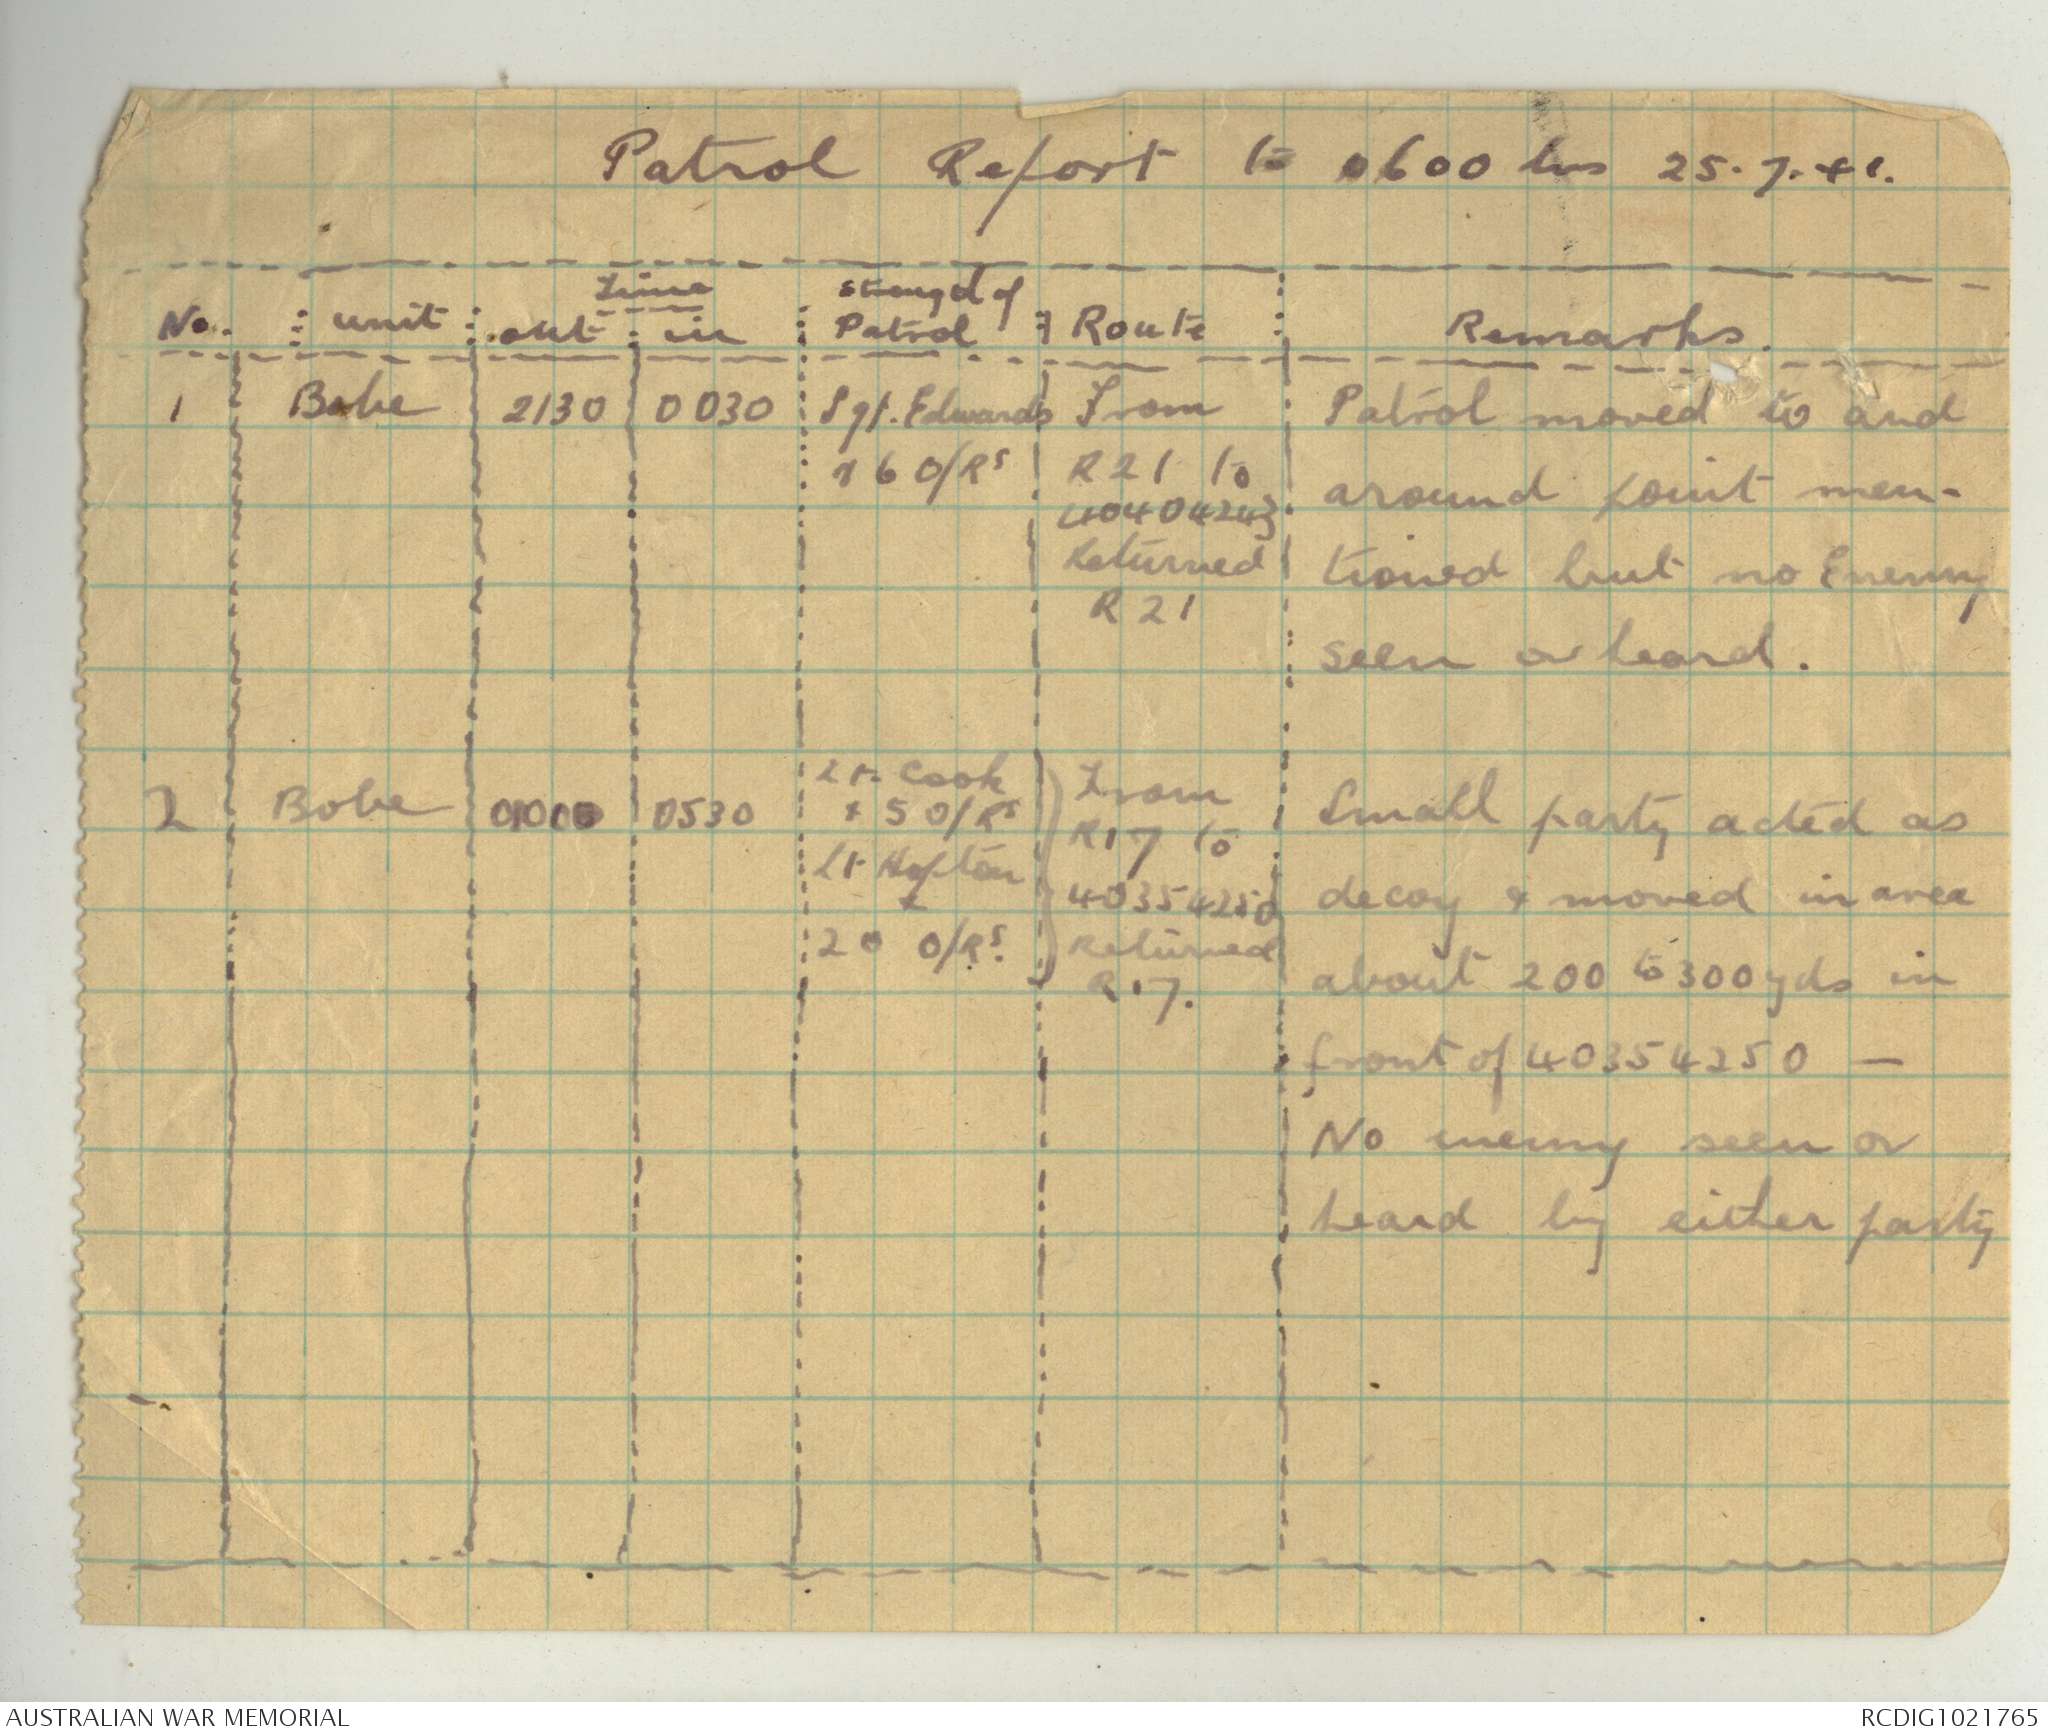 Patrol Report to 0600 hrs 25.7.41.
Time
Strength of
No. unit out in Patrol Route Remarks.
1 Bobe 2130 0030 Sgt. Edwards From Patrol moved to and
+ 6 O/Rs R21 to around point men-
40404243
Returned tioned but no Enemy
R21
seen or heard.
2 Bobe 0100 0530 Lt. Cook From Small party acted as
+ 5 O/Rs R17 to
Lt Hopton 40354250 decoy & moved in area
+
20 O/Rs. Returned about 200 to 300 yds in
R17.
front of 40354250 —
No enemy seen or
heard by either party
AUSTRALIAN WAR MEMORIAL RCDIG1021765